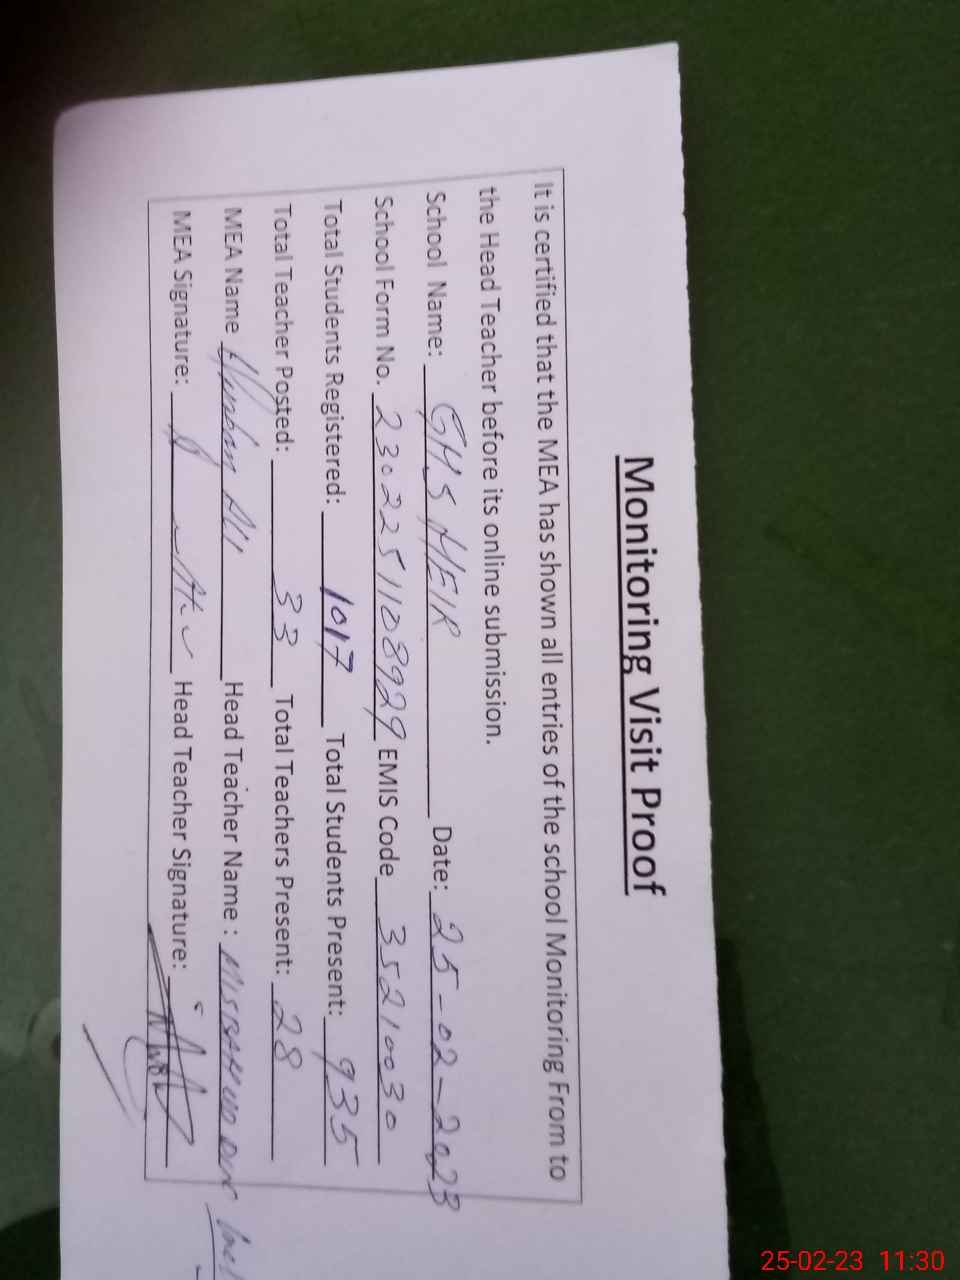 Monitoring Visit Proof
It is certified that the MEA has shown all entries of the school Monitoring From to
the Head Teacher before its online submission.
School Name: GHS HEIR Date: 25-02-2023
School Form No. 2302251108929 EMIS Code 35210030
Total Students Registered: 1017 Total Students Present: 935
Total Teacher Posted: 33 Total Teachers Present: 28
MEA Name ALI Head Teacher Name : MISBAH UD DIN
MEA Signature: Head Teacher Signature:
25-02-23 11:30